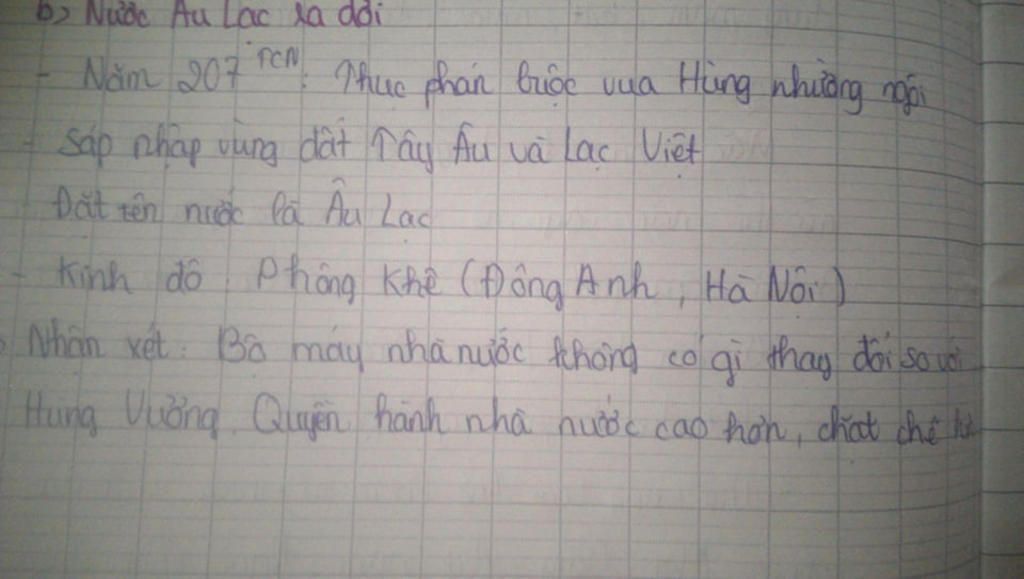 b) Nước Âu Lạc ra đời
- Năm 207 TCN: Thục phán buộc vua Hùng nhường ngôi
- Sáp nhập vùng đất Tây Âu và Lạc Việt
Đặt tên nước là Âu Lạc
- Kinh đô: Phong Khê (Đông Anh, Hà Nội)
Nhận xét: Bộ máy nhà nước không có gì thay đổi so với
Hùng Vương. Quyền hành nhà nước cao hơn, chặt chẽ hơn